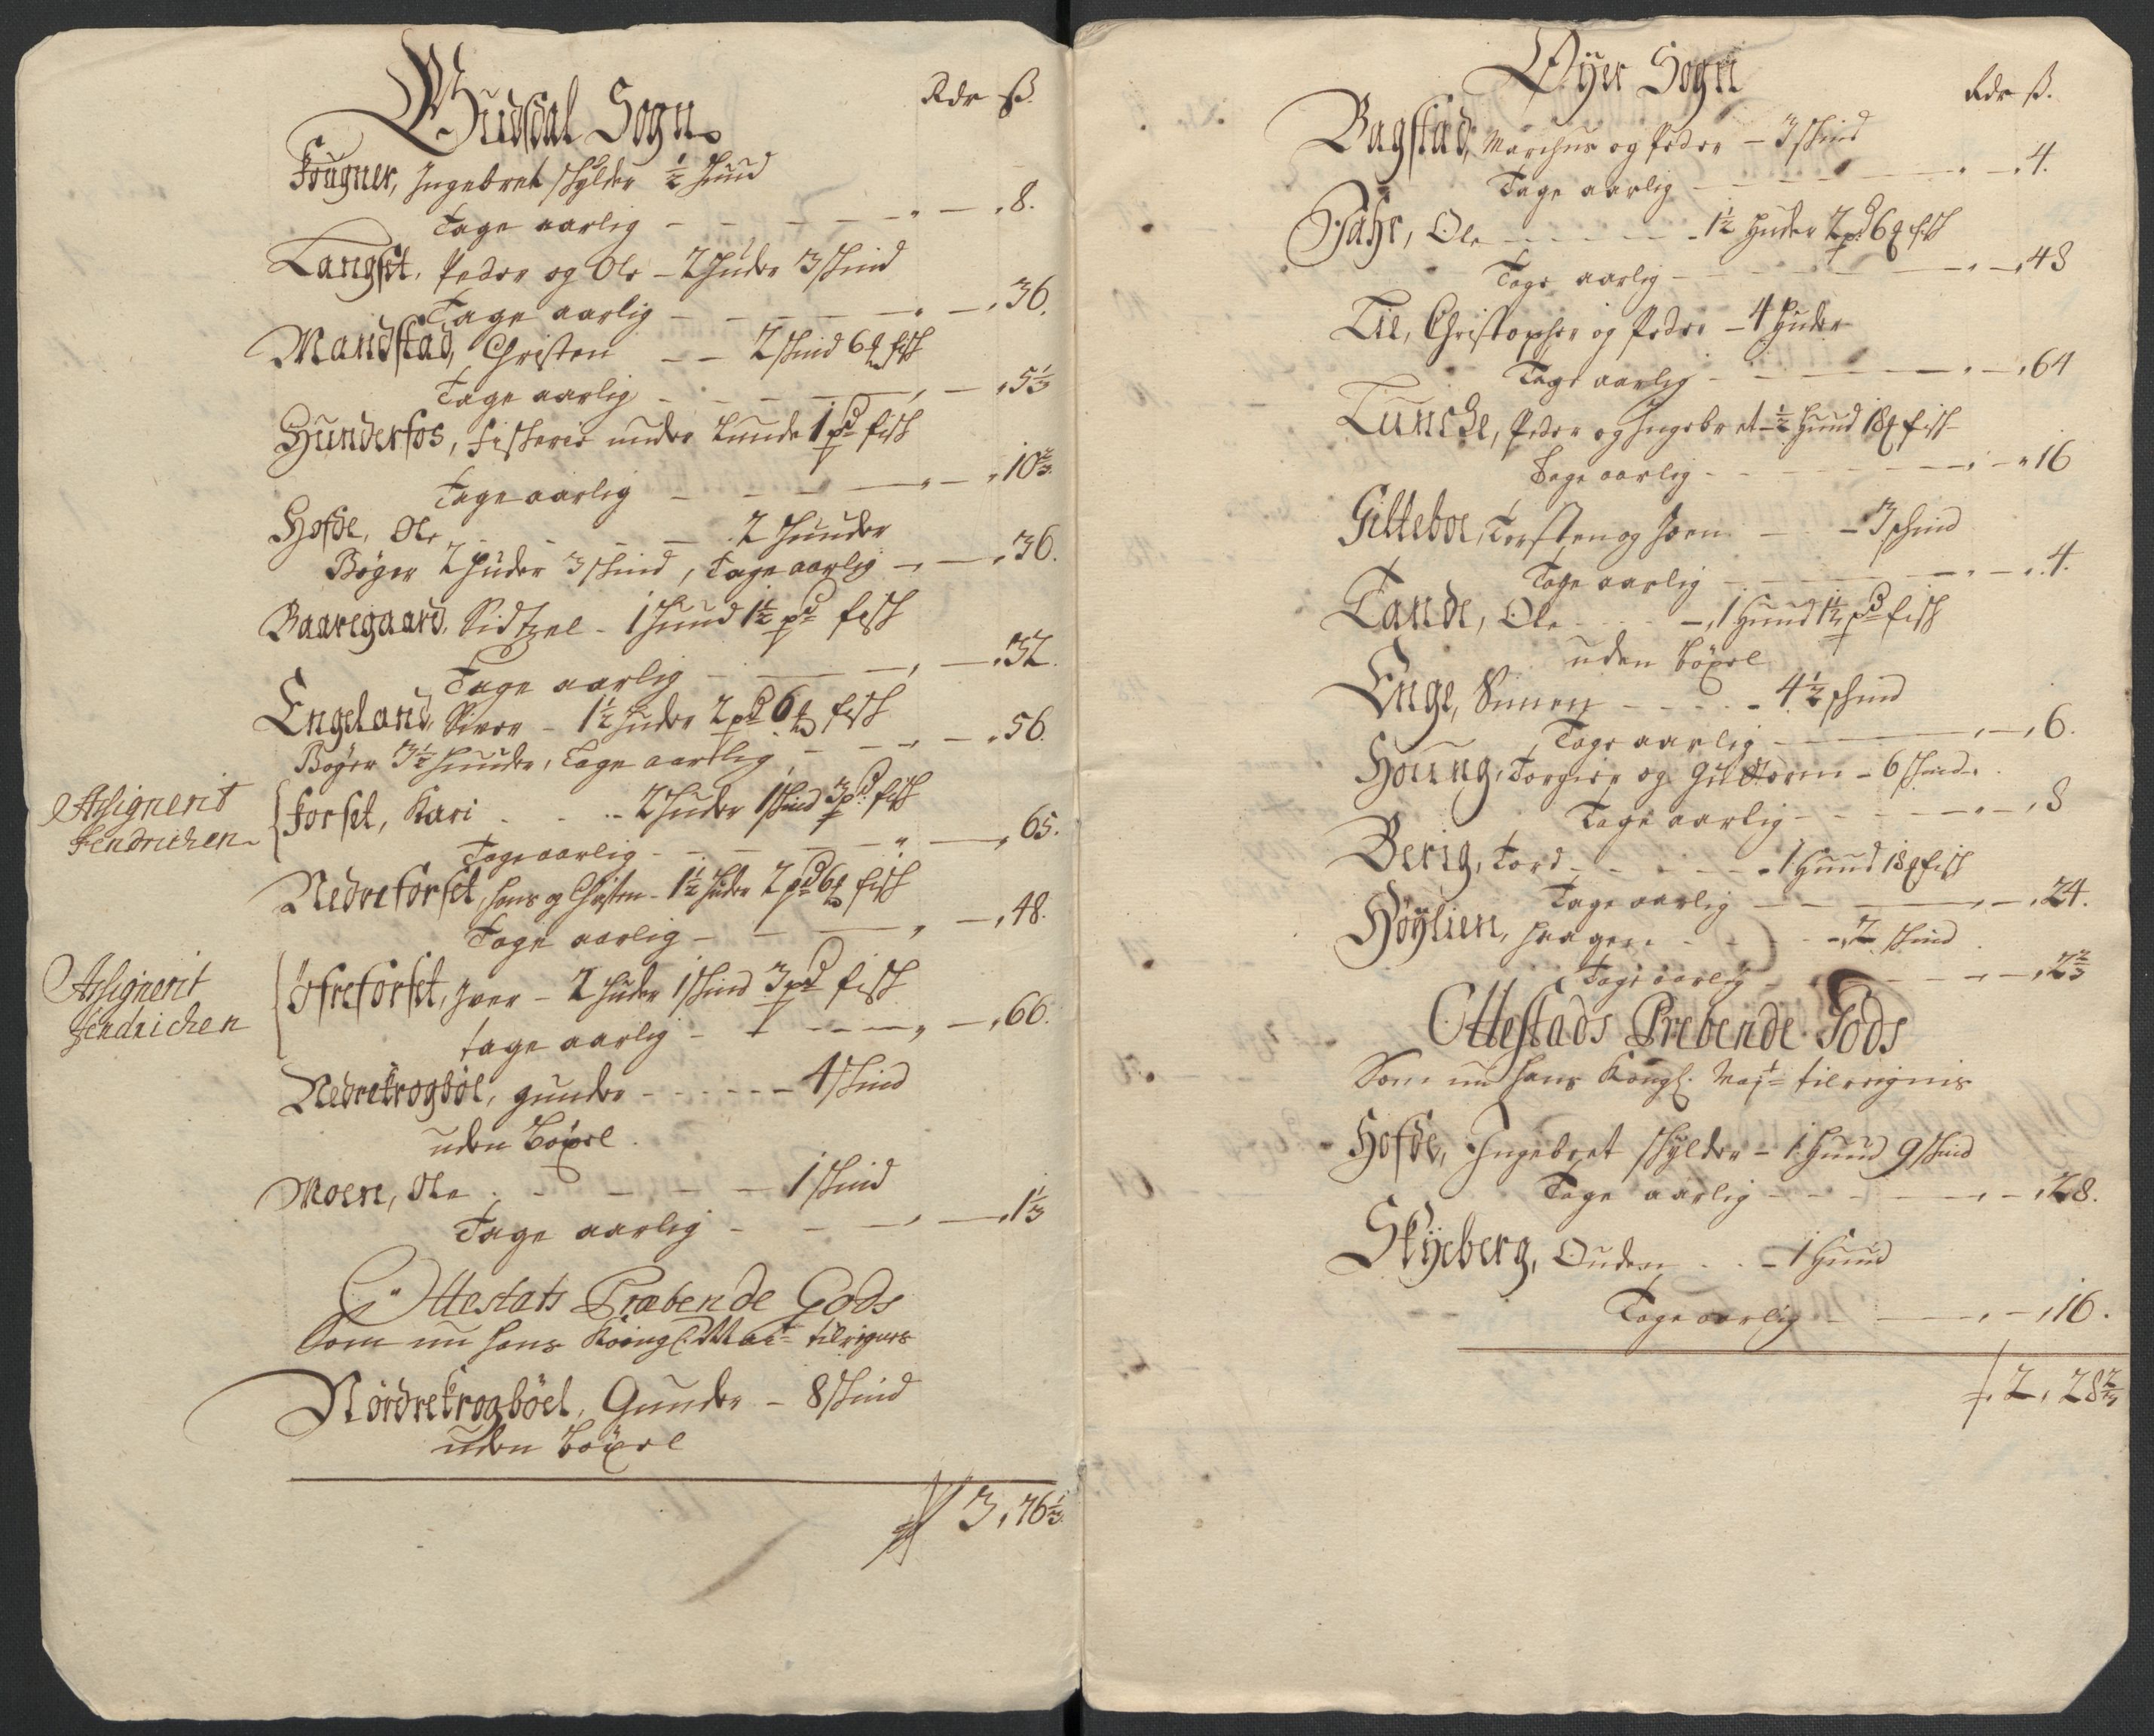 Gudsdal Sogn.
Rdr ß.
Fougner, Ingebret schylder ½ Huud
Tage aarlig - - - - - " - " 8.
Langset, Peder og Ole - 2 Huder 3 skind
Tage aarlig - - - - " - " 36.
Mandstad, Christen - - 2 skind 6 ℔ fisk
Tage aarlig - - - - " - " 5⅓
Hunderfos, fiskerie under Lunde 1 pd fisk
Tage aarlig - - - - " - " 10⅔
Hofde, Ole - - - - 2 Huuder
Bøger 2 Huder 3 skind, Tage aarlig - " - " 36.
Baaregaard, Sidtzel - 1 Huud 1½ pd fisk
Tage aarlig - - - " - " 32.
Engeland, Siver - 1½ Huder 2 pd 6 ℔ fisk
Bøger 3½ Huuder, Tage aarlig - - " - " 56.
Assignerit
Fendrichen
Forset, Kari - - - 2 Huder 1 skind 3 pd fisk
Tage aarlig - - - - " - " 65.
Nedreforset, Hans og Christen - 1½ Huder 2 pd 6 ℔ fisk
Tage aarlig - - - " - " 48.
Assignerit
Fendrichen
Øfreforset, Iver - 2 Huder 1 skind 3 pd fisk
tage aarlig - - - - - " - " 66.
Nedrekrogbøl, Gunder - - - - - - 4 skind
uden Böxel.
Moen, Ole - - - - - 1 skind
Tage aarlig - - - " - " 1⅓
Ottestats Præbende Gods
Som nu Hans Kongl. Mait tileigner
Nordrekrogböel, Gunder - 8 skind
uden Böxel
3 " 76⅓.
Øyer Sogn
Rdr ß.
Bagstad, Marchus og Peder - 3 skind
Tage aarlig - - - - - " - " 4.
Skahr, Ole - - - - - 1½ Huder 2 pd 6 ℔ fisk
Tage aarlig - - - - - " - " 48
Lil, Christopher og Peder - 4 Huder
Tage aarlig - - - - - " - " 64
Lunche, Peder og Ingebret - ½ Huud 18 ℔ fisk
Tage aarlig - - - - - " - " 16
Gilleboe, Torsten og Joen - - 3 skind
Tage aarlig - - - - - " - " 4.
Tande, Ole - - - 1 Huud 1½ pd fisk
uden Böxel
Enge, Simen - - - - 4½ skind
Tage aarlig - - - - " - " 6.
Houng, Torgier og Guttorm - 6 skind.
Tage aarlig - - - - " - " 8
Berig, Tord - - - - - 1 Huud 18 ℔ fisk
Tage aarlig - - - - " - " 24.
Høylien, Haagen - - - - 2 skind
Tage aarlig - - - - " - " 2⅔
Ottestads Prebende Gods
Som nu Hans Kongl. Mayt tilleignis
Hofde, Ingebret skylder - 1 Huud 9 skind
Tage aarlig - - - - " - " 28.
Skyeberg, Ouden - - - 1 Huud
Tage aarlig - - - " - " 16.
2 " 28⅔